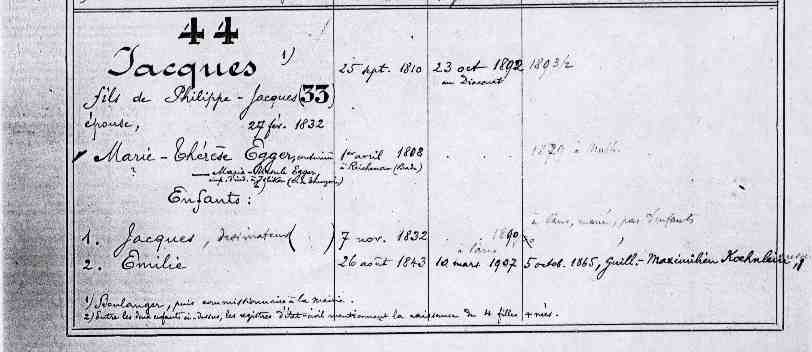 44
Jacques 1) 25 sept. 1810 23 oct 1892 1893/2
au Discount
fils de Philippe-Jacques (33)
épouse, 27 fév. 1832
Marie-Thérèse Egger, 1er avril 1808 1879 à Mulh.
à Reichenau (Bade)
Marie-Ursule Egger,
Enfants : 2)
à Paris, marié, pas d'enfants
1. Jacques, dessinateur ( ) 7 nov. 1832 1890
à Paris
2. Emilie 26 août 1843 10 mars 1907 5 octob. 1865, Guill.-Maximilien Koehnlein
1) Boulanger, puis commissionnaire à la mairie.
2) Entre les deux enfants ci-dessus, les registres d'état-civil mentionnent la naissance de 4 filles + nées.